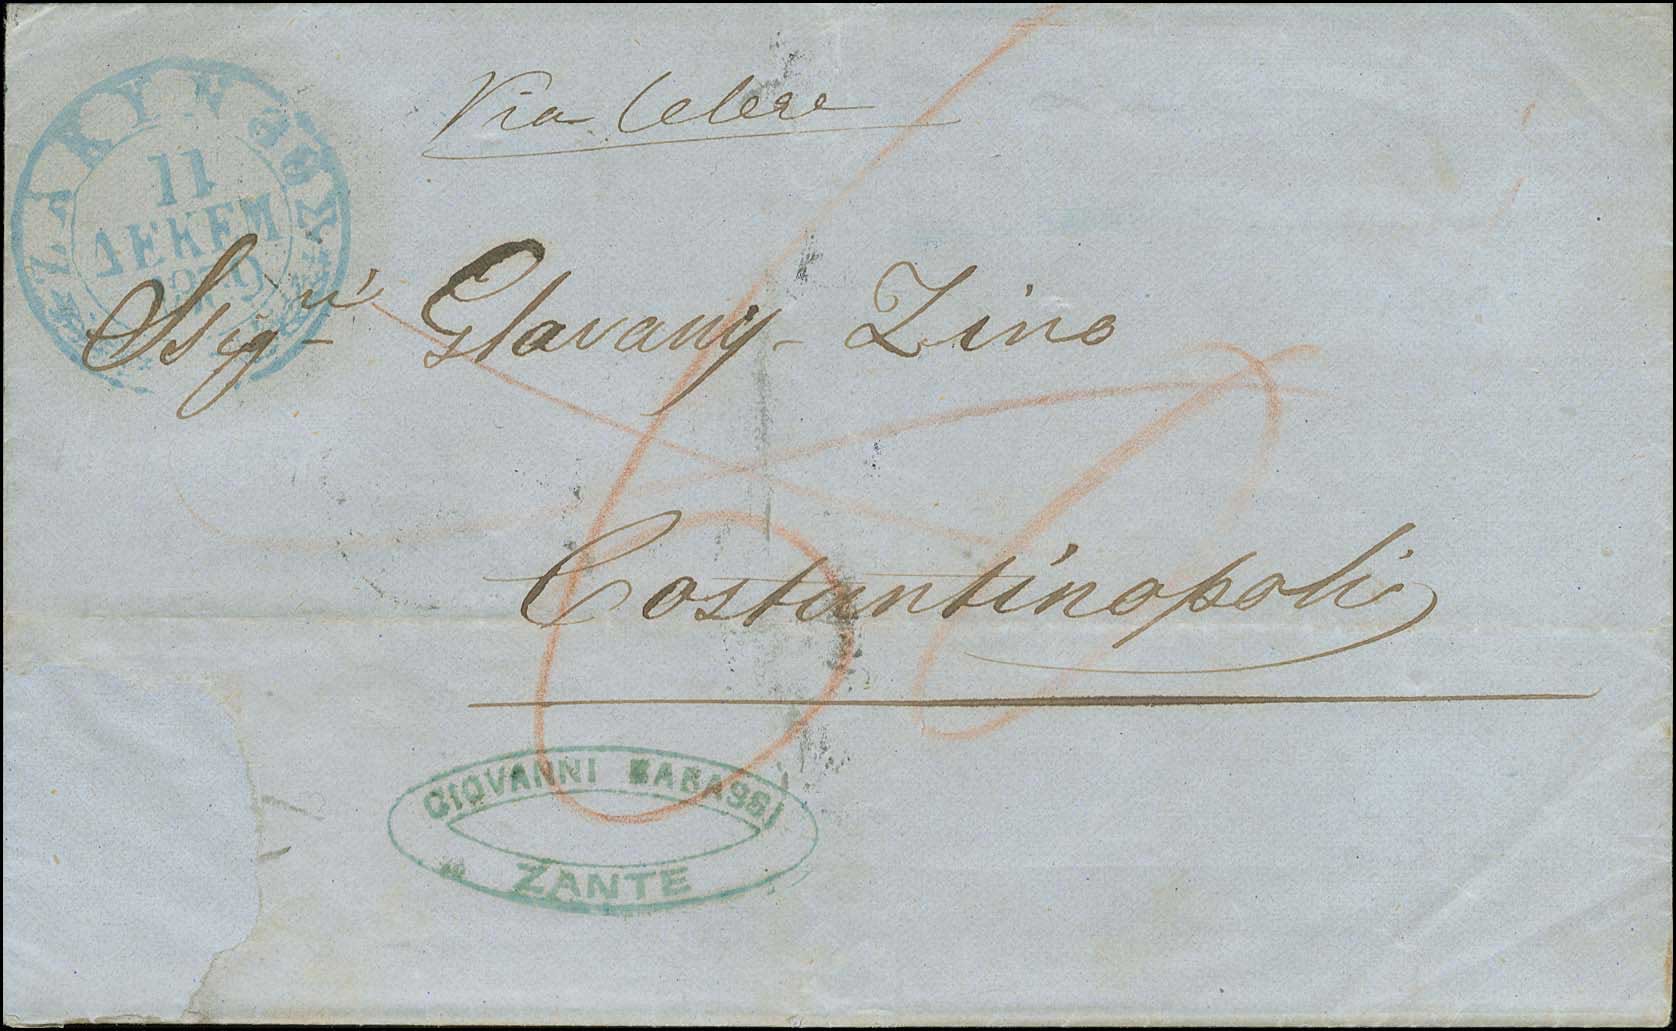 Via Celere
ΖΑΚΥΝΘΟΣ
11
ΔΕΚΕΜ
Ssigri Glavany - Zino
Costantinopoli
GIOVANNI
ZANTE